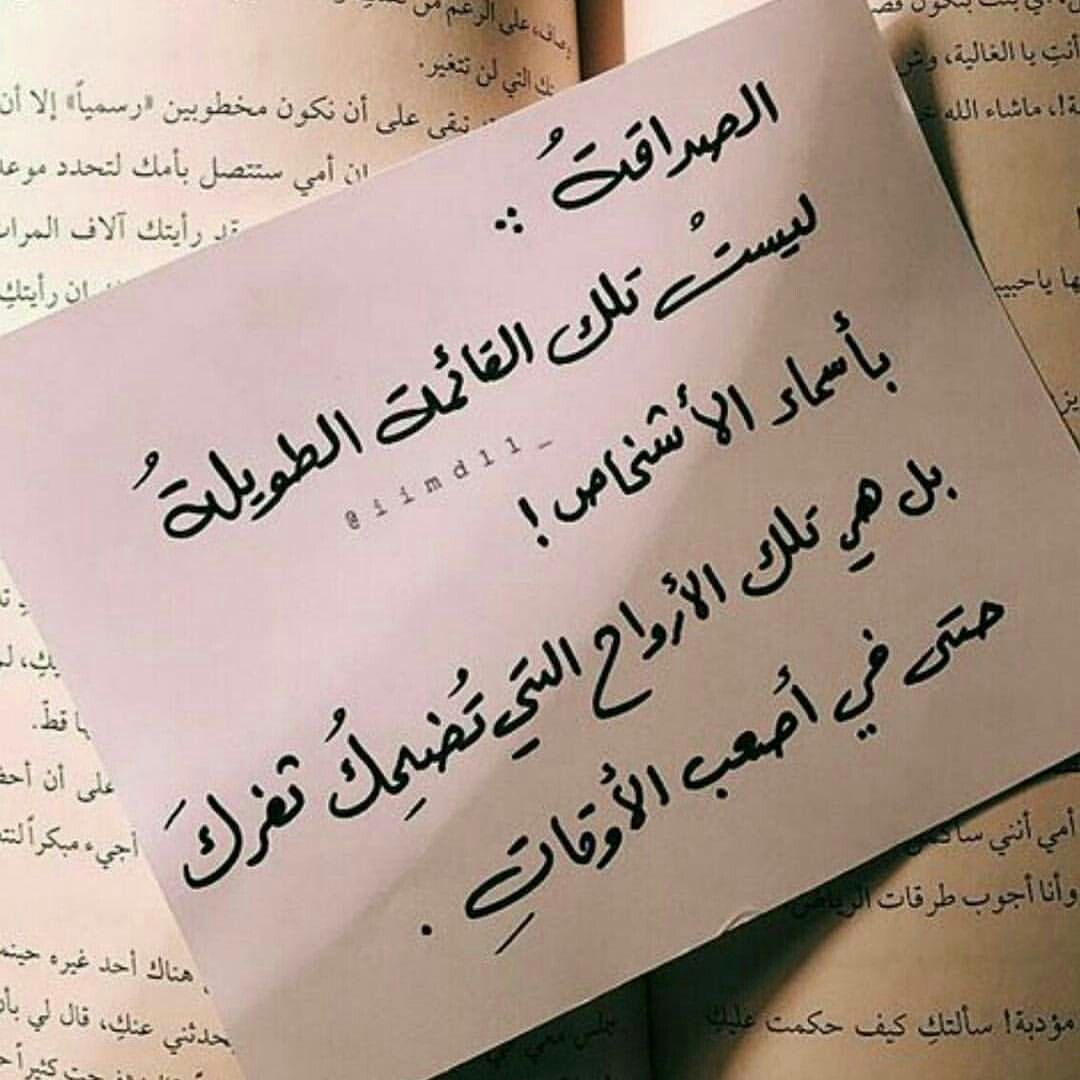 الصداقةُ :
ليستْ تلك القائمة الطويلةُ
بأسماء الأشخاص !
بل هي تلك الأرواح التي تُضحِكُ ثغركَ
حتى في أصعب الأوقاتِ .
@iimd11_
على الرغم من
تك التي لن تتغير.
تبقى على أن نكون مخطوبين «رسمياً» إلا أن
إن أمي ستتصل بأمك لتحدد موعد
قد رأيتك آلاف المرات
إن رأيتكِ
ها قطّ.
على أن
أجيء مبكراً
هناك أحد غيره حينما
يحدثني عنكِ، قال لي بأن
كثيراً
أنتِ يا الغالية،
ماشاء الله
أمي أنني
وأنا أجوب طرقات الرياض
مؤدبة! سألتكِ كيف حكمت عليكِ